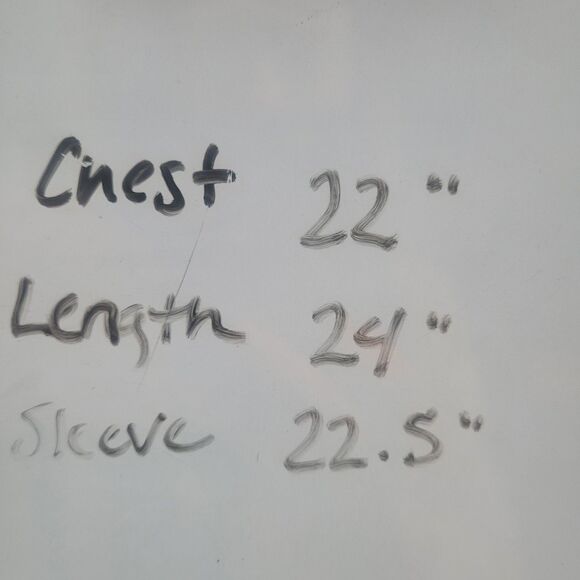 Chest 22"
Length 24"
Sleeve 22.5"